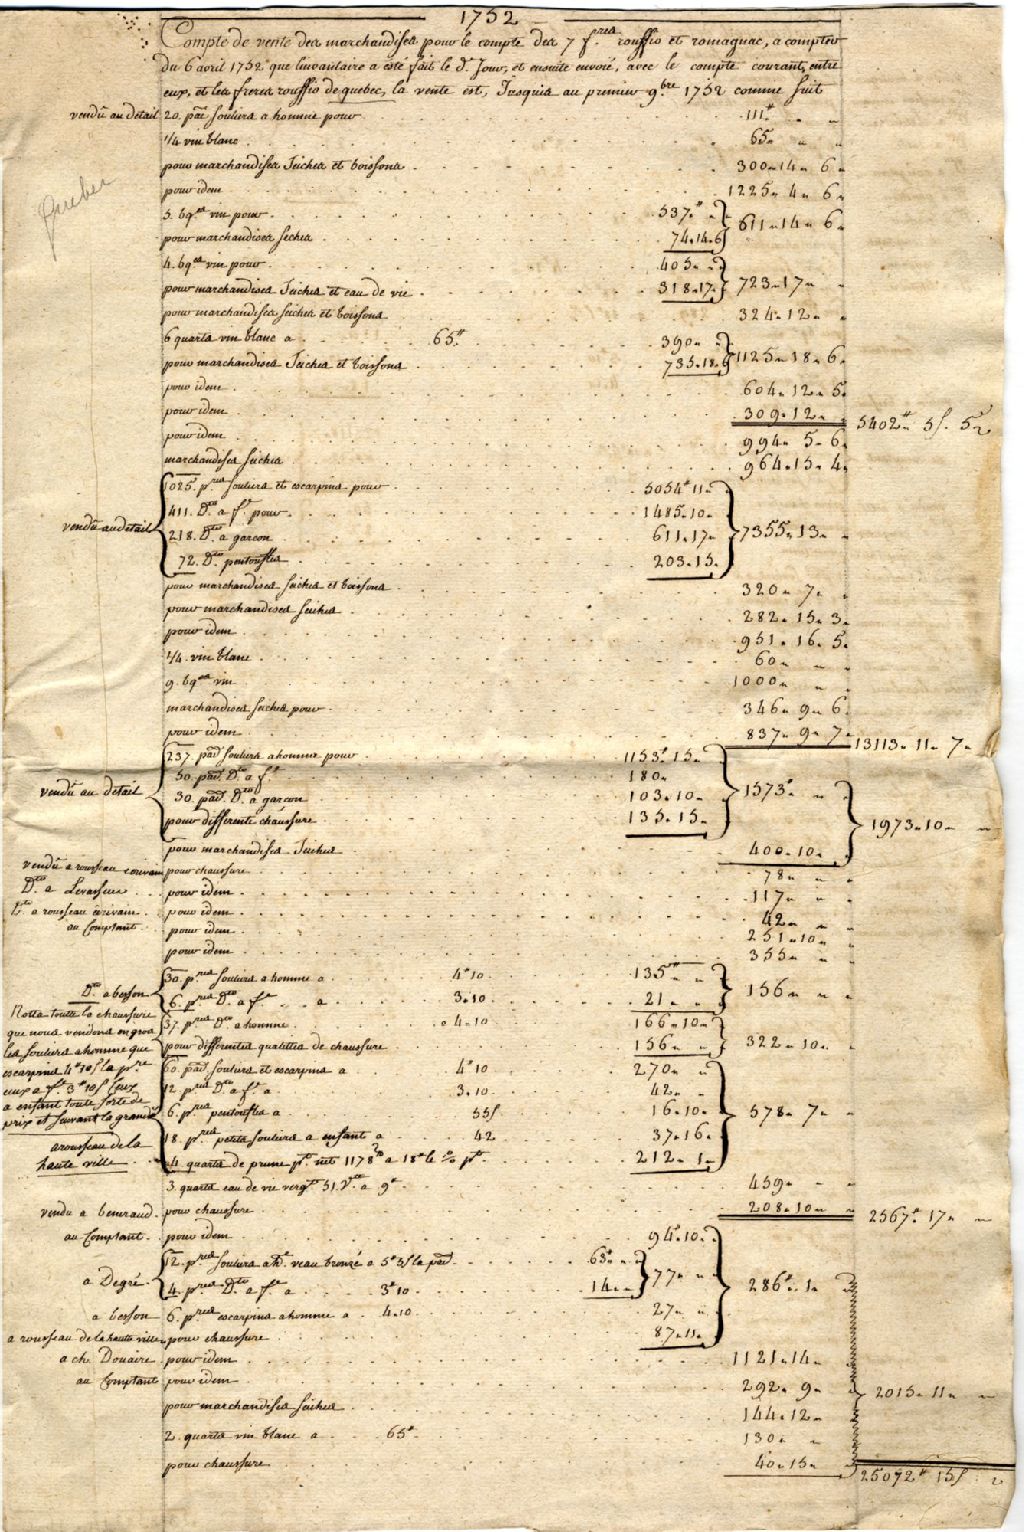 1752
Compte de vente des marchandises pour le compte des 7 f.res rouffio et romagnac, a compter
du 6 avril 1752 que linvantaire a esté fait le d. Jour, et ensuite envoié, avec le compte courant, entre
eux, et les freres rouffio de quebec, la vente est, Jusquis au premier 9.bre 1752 comme suit
vendu au detail 20. pres souliers a homme pour 111.# " "
1/4 vin blanc 65 " "
pour marchandises Seiches et boissons 300 " 14 " 6
pour idem 1225 " 4 " 6
5. bq.es vin pour 537.# " } 611 " 14 " 6
pour marchandises seches 74.14.6
4. bq.es vin pour 405 " " } 723 " 17 "
pour marchandises Seiches et eau de vie 318.17
pour marchandises seiches et boissons 324 " 12 "
6 quarts vin blanc a 65.# 390 " } 1125 " 18 " 6
pour marchandises Seiches et boissons 735.18.6
pour idem 604 " 12 " 5
pour idem 309 " 12 " 5402# 5s. 5
pour idem 994 " 5 " 6
marchandises seiches 964 " 15 " 4
1025. p.res souliers et escarpins pour 5054# 11
411. D.to a f.e pour 1485.10
vendu au detail 218. D.to a garcon 611.17 } 7355 " 13 "
72. D.to pentoufles 203.15
pour marchandises seiches et boissons 320 " 7 "
pour marchandises seiches 282 " 15 " 3
pour idem 951 " 16 " 5
1/4. vin blanc 60 " "
9. bq.es vin 1000 " "
marchandises seiches pour 346 " 9 " 6
pour idem 837 " 9 " 7 13113 " 11 " 7
237. pres souliers a homme pour 1153# 15
50. pres D.to a f.e 180
vendu au detail 30. pres D.to a garcon 103.10 } 1573# "
pour differente chaussure 135.15 1973 " 10 "
pour marchandises Seiches 400 " 10
vendu a rousseau pour chaussure 78 " "
D.to a Levasseur pour idem 117 " "
D.to a rousseau écrivain pour idem 42 " "
au Comptant pour idem 251 " 10
pour idem 355 " "
30. p.res souliers a homme a 4#10 135# " } 156 " "
D.to a besson 6. p.res D.to a f.e a 3.10 21 "
Notta toute la chaussure 37. p.res D.to a homme a 4.10 166.10 } 322 " 10
que nous vendons en gros
les souliers a homme que pour differentes quallités de chaussure 156
escarpins 4#10s la p.re 60. pres souliers et escarpins a 4#10 270 "
ceux a f.e 3#10s Ceux 12. p.res D.to a f.e a 3.10 42 "
a enfant toute sorte de
prix et suivant la grand.r 6. p.res pentoufles a 55s 16.10 } 578 " 7
a rousseau de la 18. p.res petits souliers a enfant a 42 37.16
haute ville 4. quarts de prune p.t net 1178 a 18# le % p.r 212.1
3 quarts eau de vie verg.t 51. V.tes a 9# 459 "
vendu a beniraud pour chaussure 208.10 2567# 17
au Comptant pour idem 94#10
12. p.res souliers a h.e veau bronzé a 5#5s la pre 63# } 77 286# 1
a Degré 4. p.res D.to a f.e a 3#10 14
a besson 6. p.res escarpins a homme a 4.10 27
a rousseau de la haute ville pour chaussure 87.11
a ch. Douaire pour idem 1121.14
au Comptant pour idem 292 " 9 2015 " 11
pour marchandises seiches 144 " 12
2 quarts vin blanc a 65# 130 "
pour chaussure 40 " 15 25072# 15s 2
Quebec